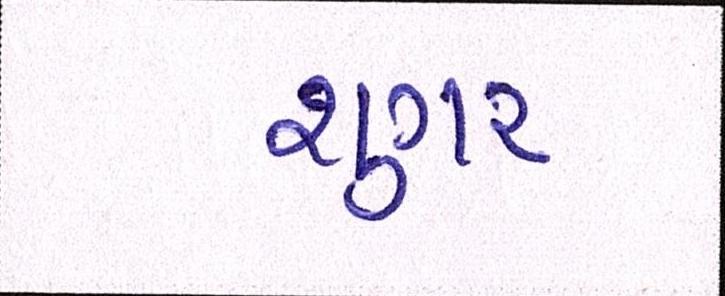 શુગર